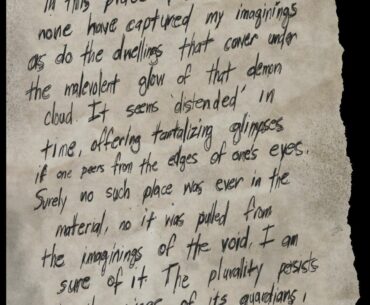 In this place
none have captured my imaginings
as do the dwellings that cower under
the malevolent glow of that demon
cloud. It seems 'distended' in
time, offering tantalizing glimpses
if one peers from the edges of one's eyes.
Surely no such place was ever in the
material, no it was pulled from
the imaginings of the void, I am
sure of it. The plurality persists
of its guardians,